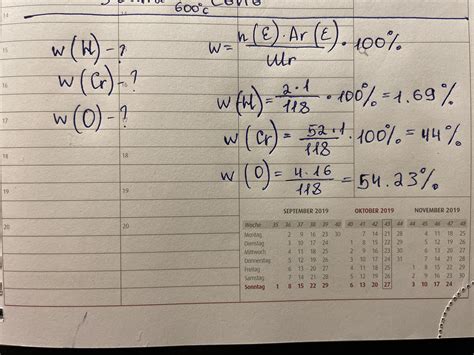 600°C
w(H) - ?
w(Cr) - ?
w(O) - ?
w = n(E)·Ar(E)/Mr · 100%
w(H) = 2·1/118 · 100% = 1.69%
w(Cr) = 52·1/118 · 100% = 44%
w(O) = 4·16/118 = 54.23%
14
15
16
17
18
19
20
14
18
19
20
SEPTEMBER 2019 OKTOBER 2019 NOVEMBER 2019
Woche 35 36 37 38 39 40 40 41 42 43 44 44 45 46 47 48
Montag 2 9 16 23 30 7 14 21 28 4 11 18 25
Dienstag 3 10 17 24 1 8 15 22 29 5 12 19 26
Mittwoch 4 11 18 25 2 9 16 23 30 6 13 20 27
Donnerstag 5 12 19 26 3 10 17 24 31 7 14 21 28
Freitag 6 13 20 27 4 11 18 25 1 8 15 22 29
Samstag 7 14 21 28 5 12 19 26 2 9 16 23 30
Sonntag 1 8 15 22 29 6 13 20 27 3 10 17 24